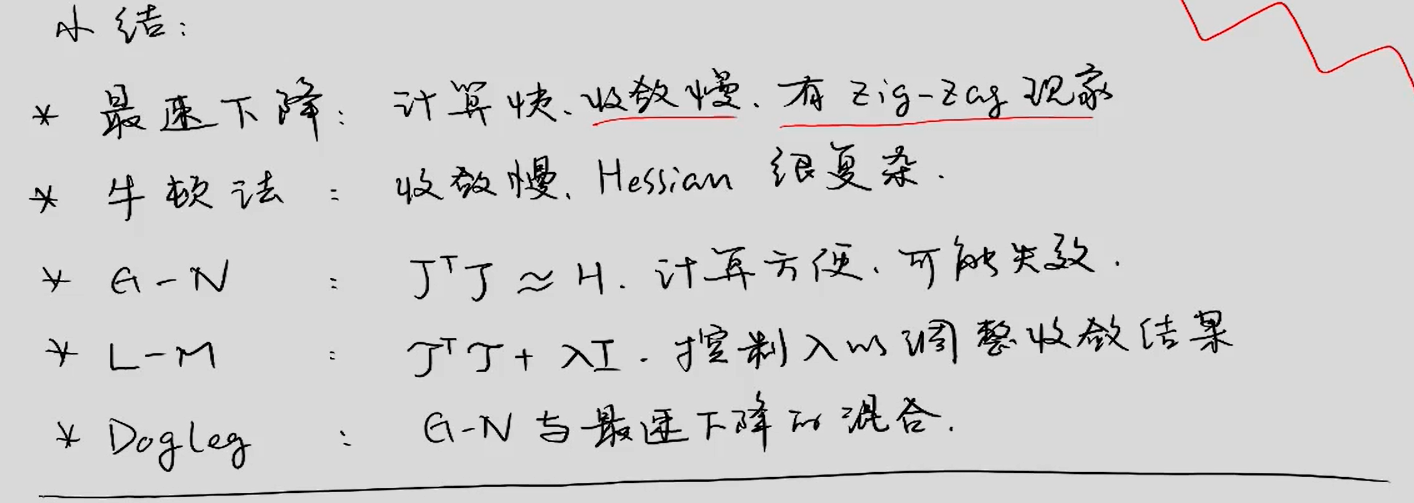 小结:
* 最速下降: 计算快、收敛慢、有 zig-zag 现象
* 牛顿法: 收敛慢、Hessian 很复杂.
* G-N: JᵀJ ≈ H. 计算方便、可能失效.
* L-M: JᵀJ + λI. 控制 λ 以调整收敛结果
* Dogleg: G-N 与最速下降的混合.